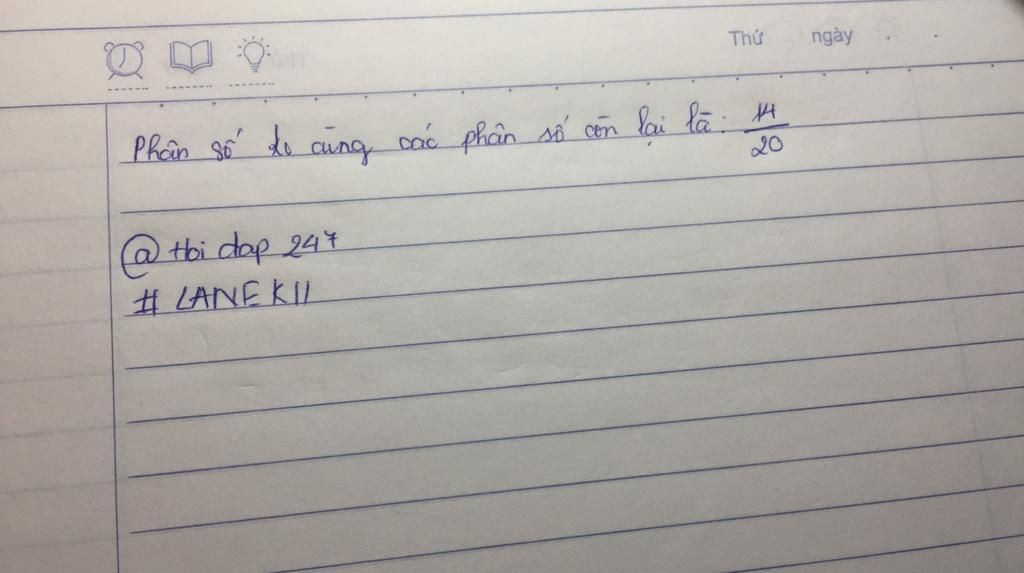 Thứ ngày . .
Phân số do cùng các phân số còn lại là: 14/20
@ Hoi dap 247
# LANEK11